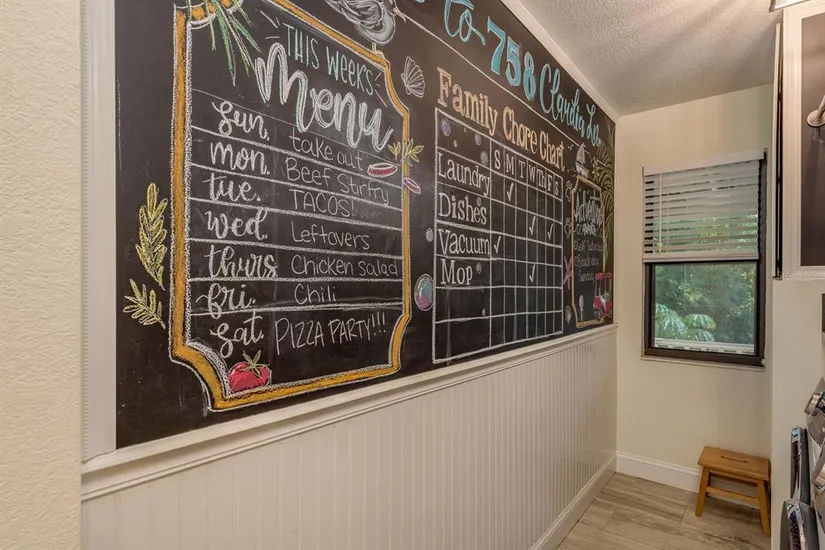 to 758 Claudia
THIS WEEK'S
Menu
Sun. take out
mon. Beef Stirfry
tue. TACOS!
wed. Leftovers
thurs Chicken salad
fri. Chili
sat. PIZZA PARTY!!!
Family Chore Chart
S M T W Th F S
Laundry
Dishes
Vacuum
Mop